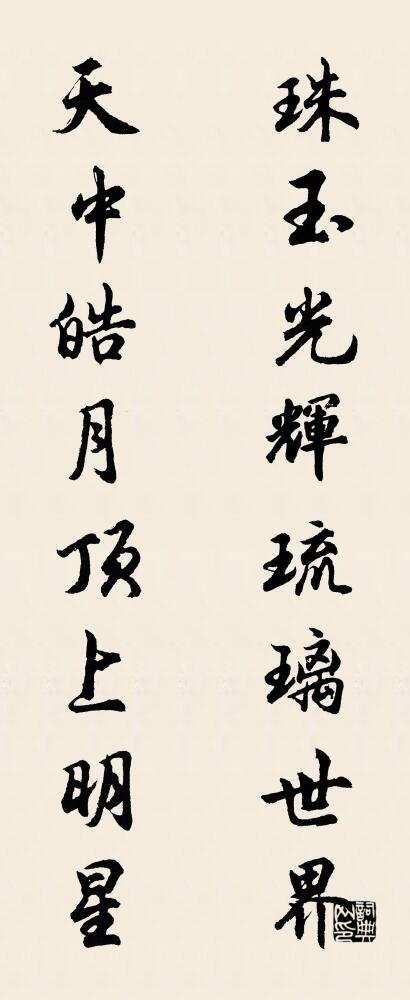 珠玉光輝琉璃世界
天中皓月顶上明星
詞典